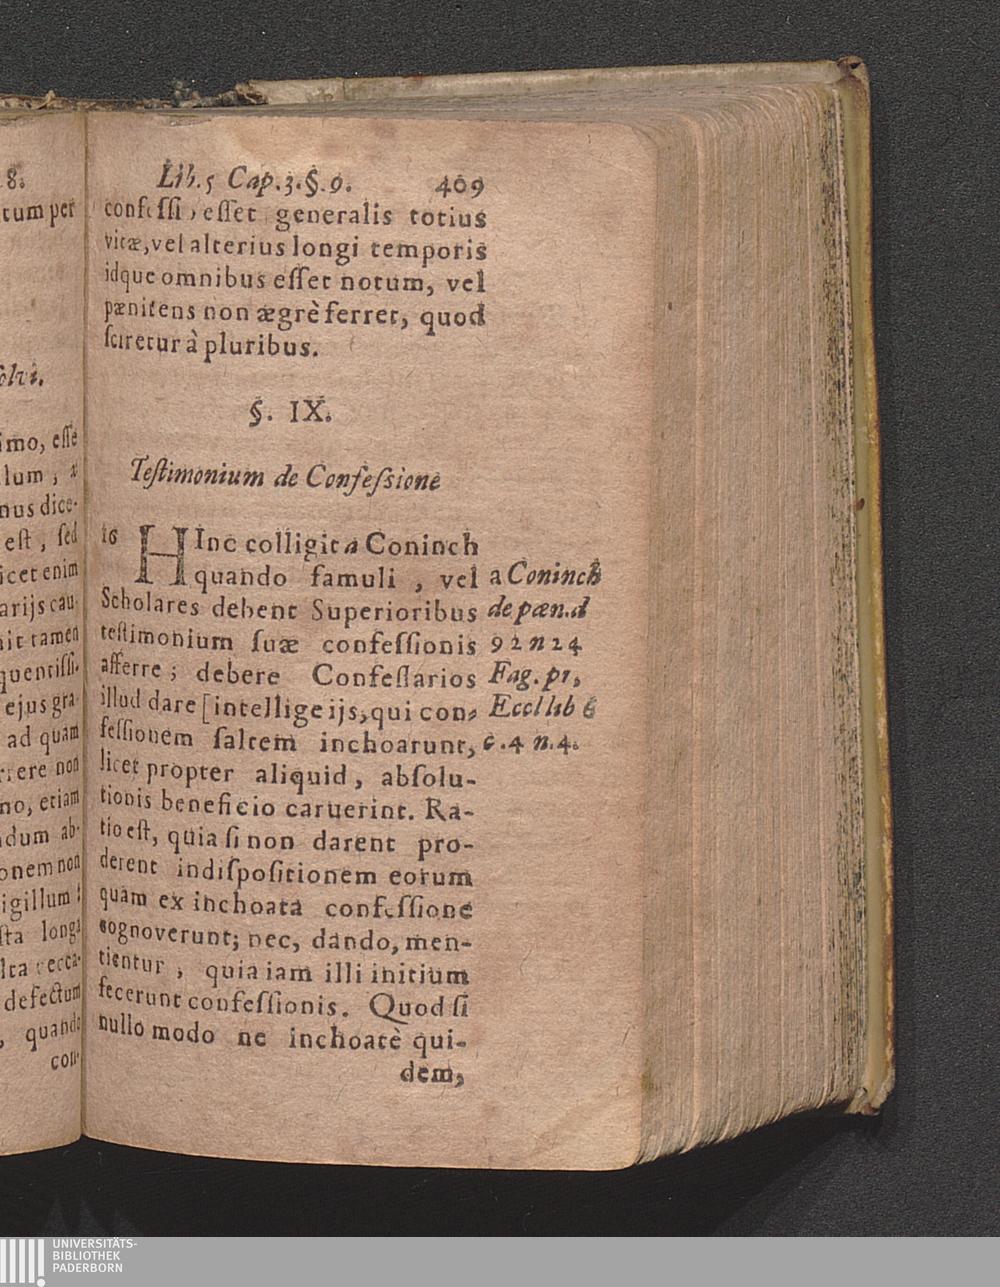 8.
tum per
solvi.
imo, esse
lum, &
nus dice-
est, sed
icet enim
arijs cau-
nit tamen
quentissi-
ejus gra-
ad quam
rrere non
no, etiam
ndum ab-
onem non
igillum:
sta longa
lta recca-
defectum
, quando
con-
Lib. 5 Cap. 3. §. 9. 409
confessi, esset generalis totius
vitæ, vel alterius longi temporis
idque omnibus esset notum, vel
pænitens non ægrè ferret, quod
sciretur à pluribus.
§. IX.
Testimonium de Confessione
16 HInc colligit a Coninch
quando famuli, vel
Scholares debent Superioribus
testimonium suæ confessionis
afferre; debere Confessarios
illud dare [intellige ijs, qui con-
fessionem saltem inchoarunt,
licet propter aliquid, absolu-
tionis beneficio caruerint. Ra-
tio est, quia si non darent pro-
derent indispositionem eorum
quam ex inchoata confessione
cognoverunt; nec, dando, men-
tientur, quia iam illi initium
fecerunt confessionis. Quod si
nullo modo ne inchoatè qui-
dem,
a Coninch
de pæn. d
9 2 n 24
Fag. p1,
Eccl lib 6
c. 4 n. 4.
UNIVERSITÄTS-
BIBLIOTHEK
PADERBORN